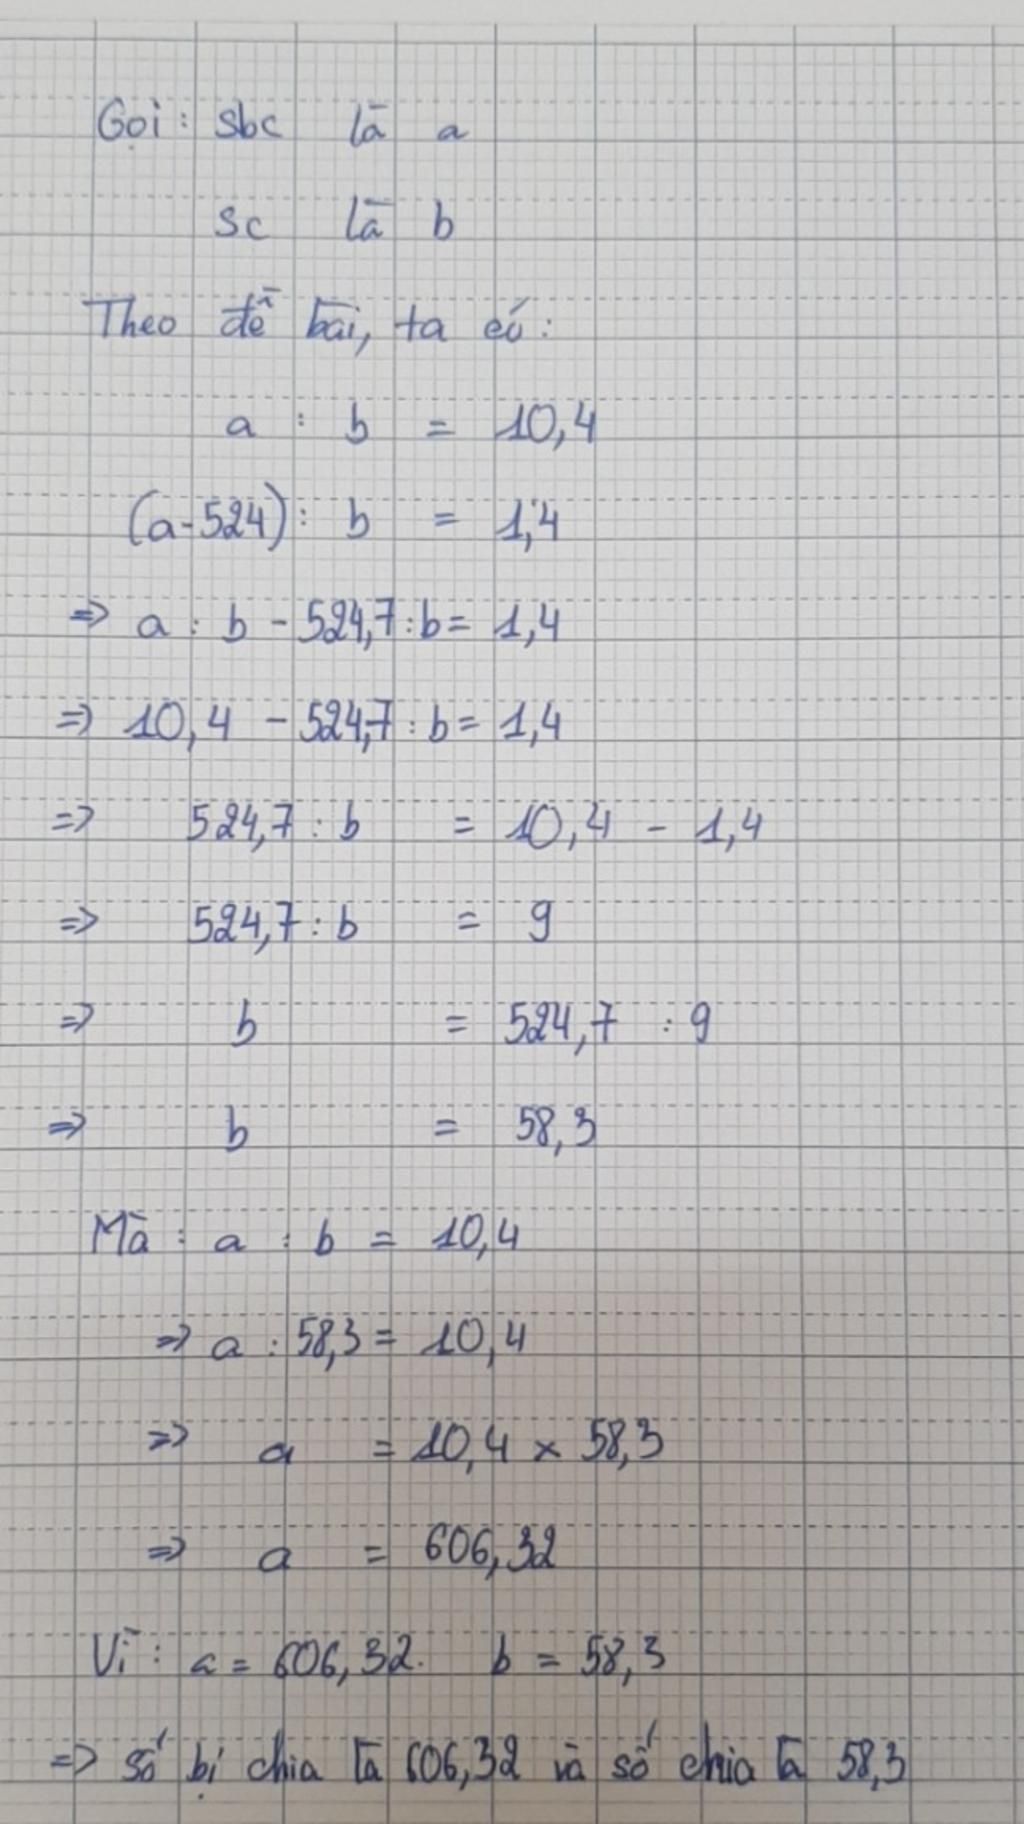 Gọi: sbc là a
sc là b
Theo đề bài, ta có:
a : b = 10,4
(a-524) : b = 1,4
=> a : b - 524,7 : b = 1,4
=> 10,4 - 524,7 : b = 1,4
=> 524,7 : b = 10,4 - 1,4
=> 524,7 : b = 9
=> b = 524,7 : 9
=> b = 58,3
Mà : a : b = 10,4
=> a : 58,3 = 10,4
=> a = 10,4 x 58,3
=> a = 606,32
Vì : a = 606,32. b = 58,3
=> số bị chia là 606,32 và số chia là 58,3